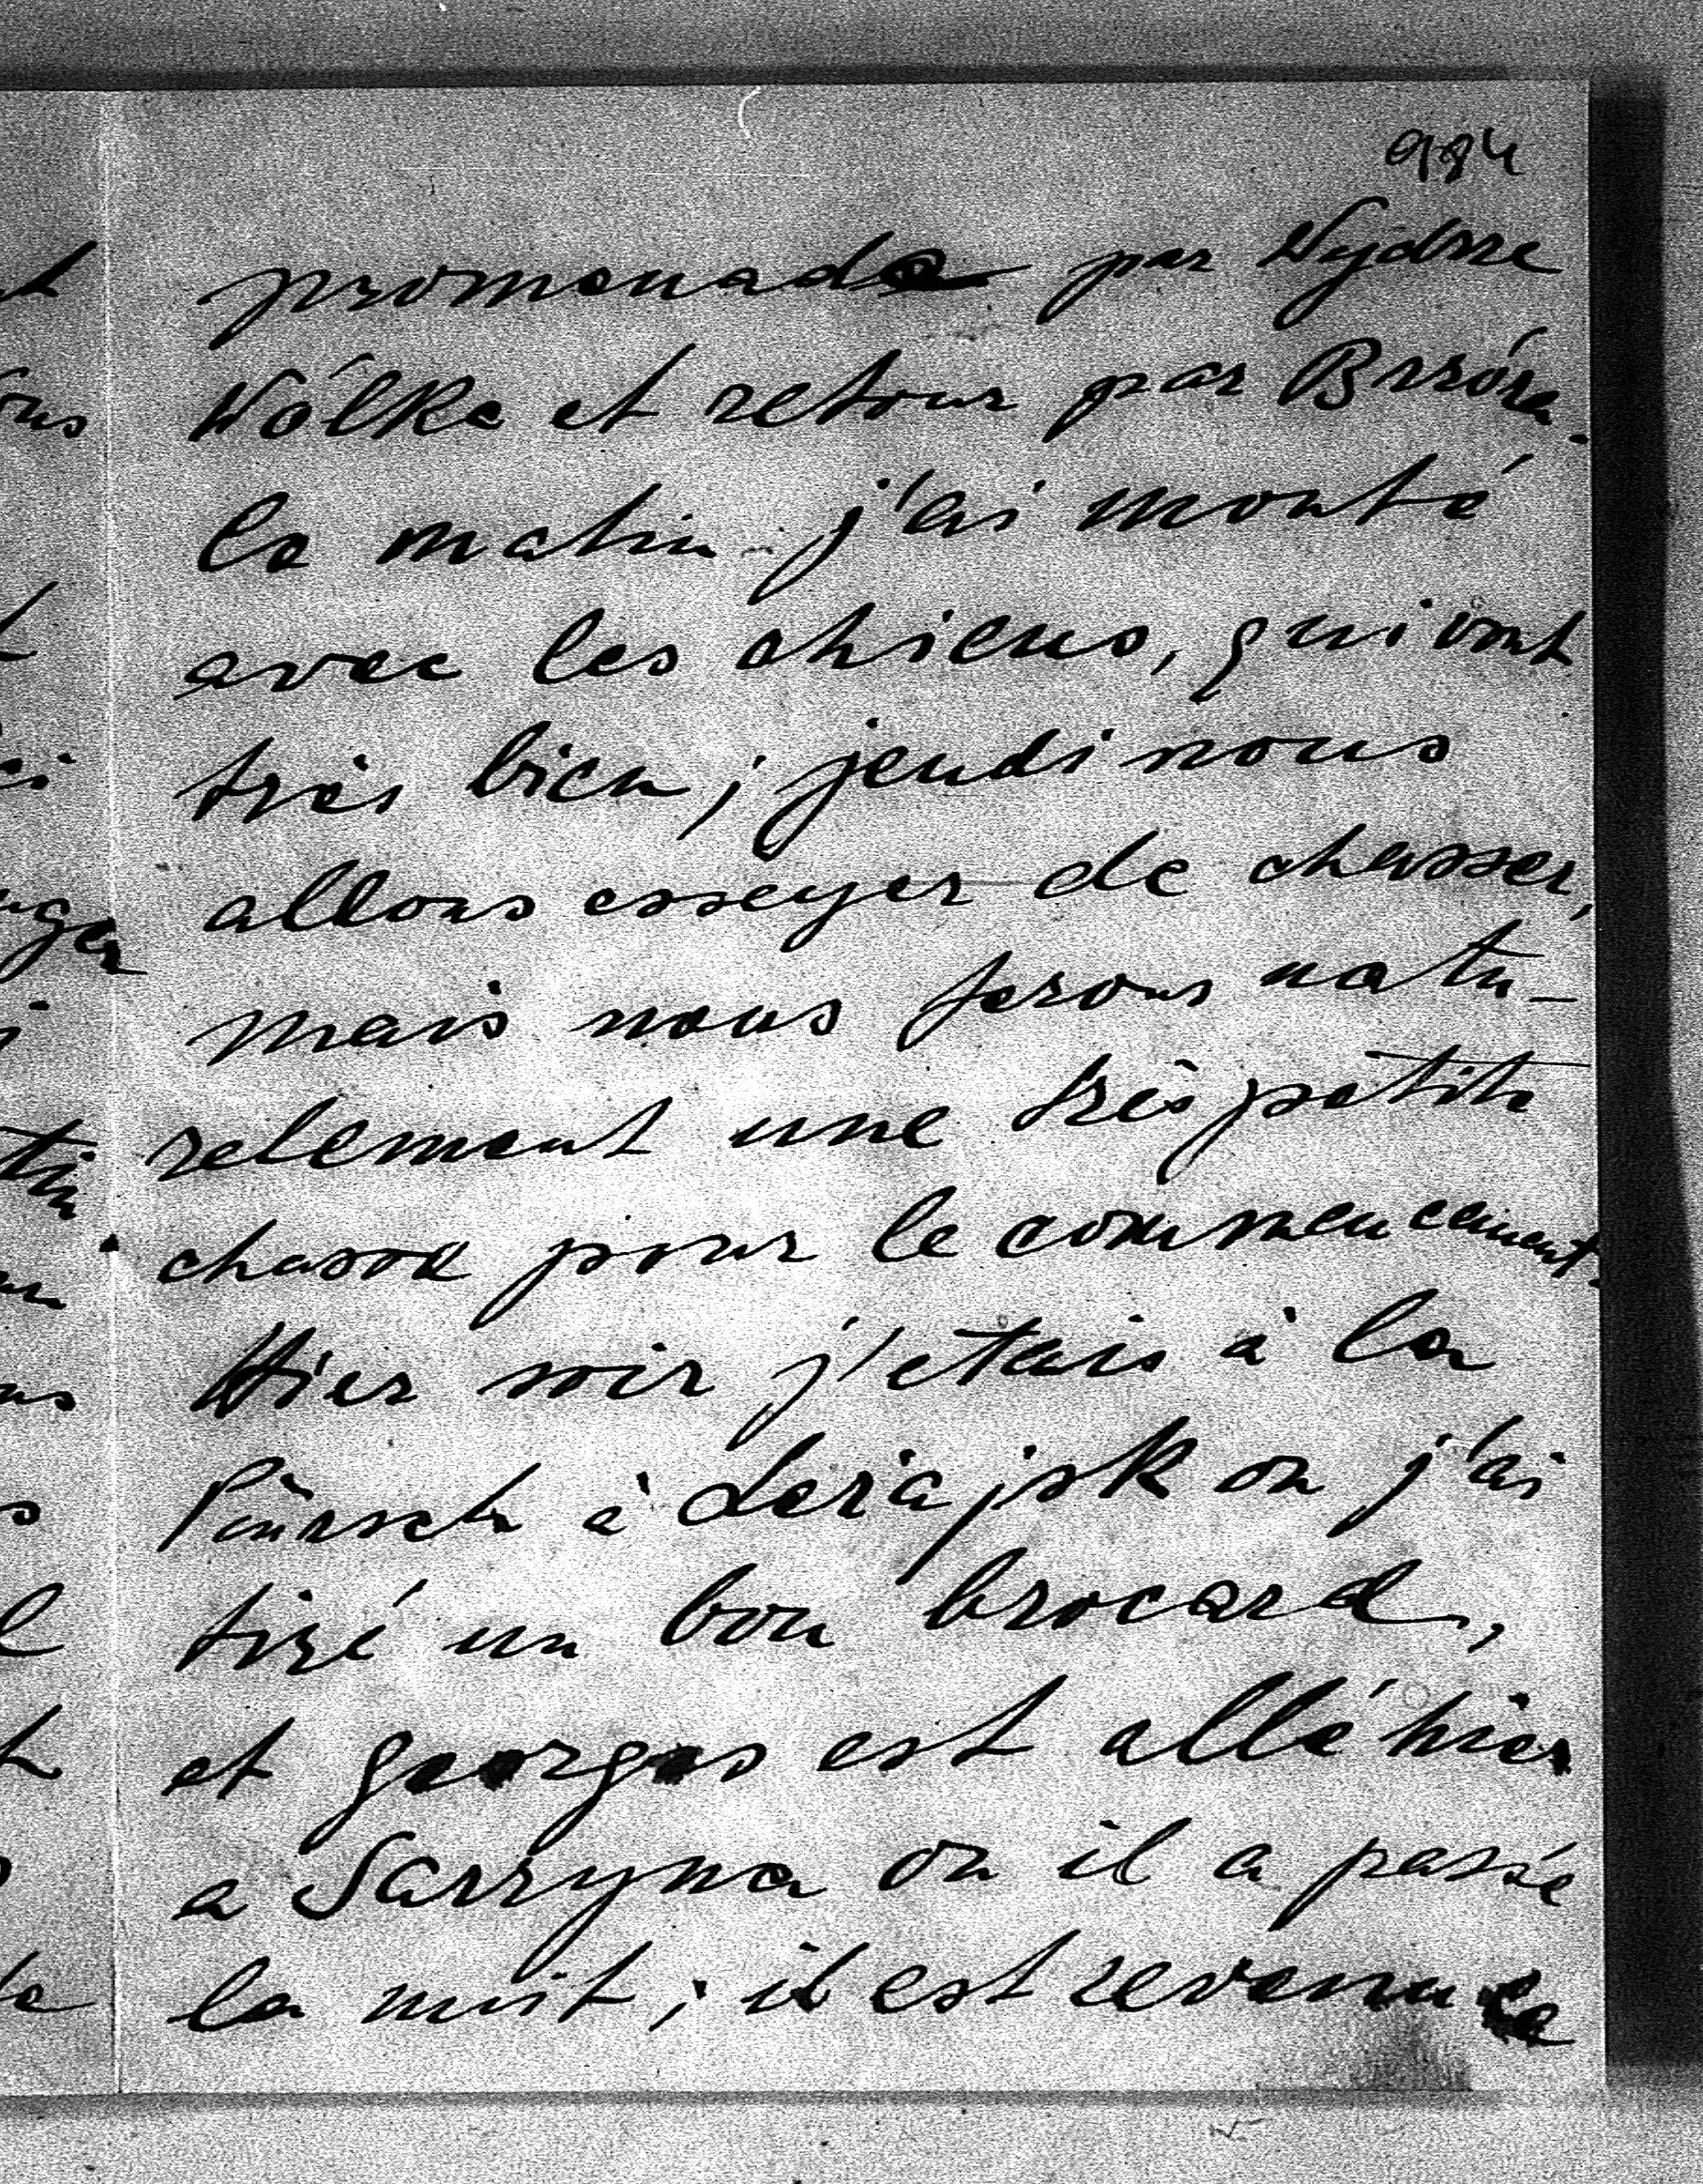 984
promenade par Wydrze
Wólke et retour par Brzóza.
le matin j'ai monté
avec les chiens, qui vont
très bien; jeudi nous
allons esseyer de chasser,
mais nous ferons natu-
relement une très petite
chasse pour le commencement.
Hier soir j'etais à la
Pürsch à Leżajsk ou j'ai
tiré un bon brocard,
et Georges est allé hier
a Sarzyna ou il a passé
la nuit; il est revenu